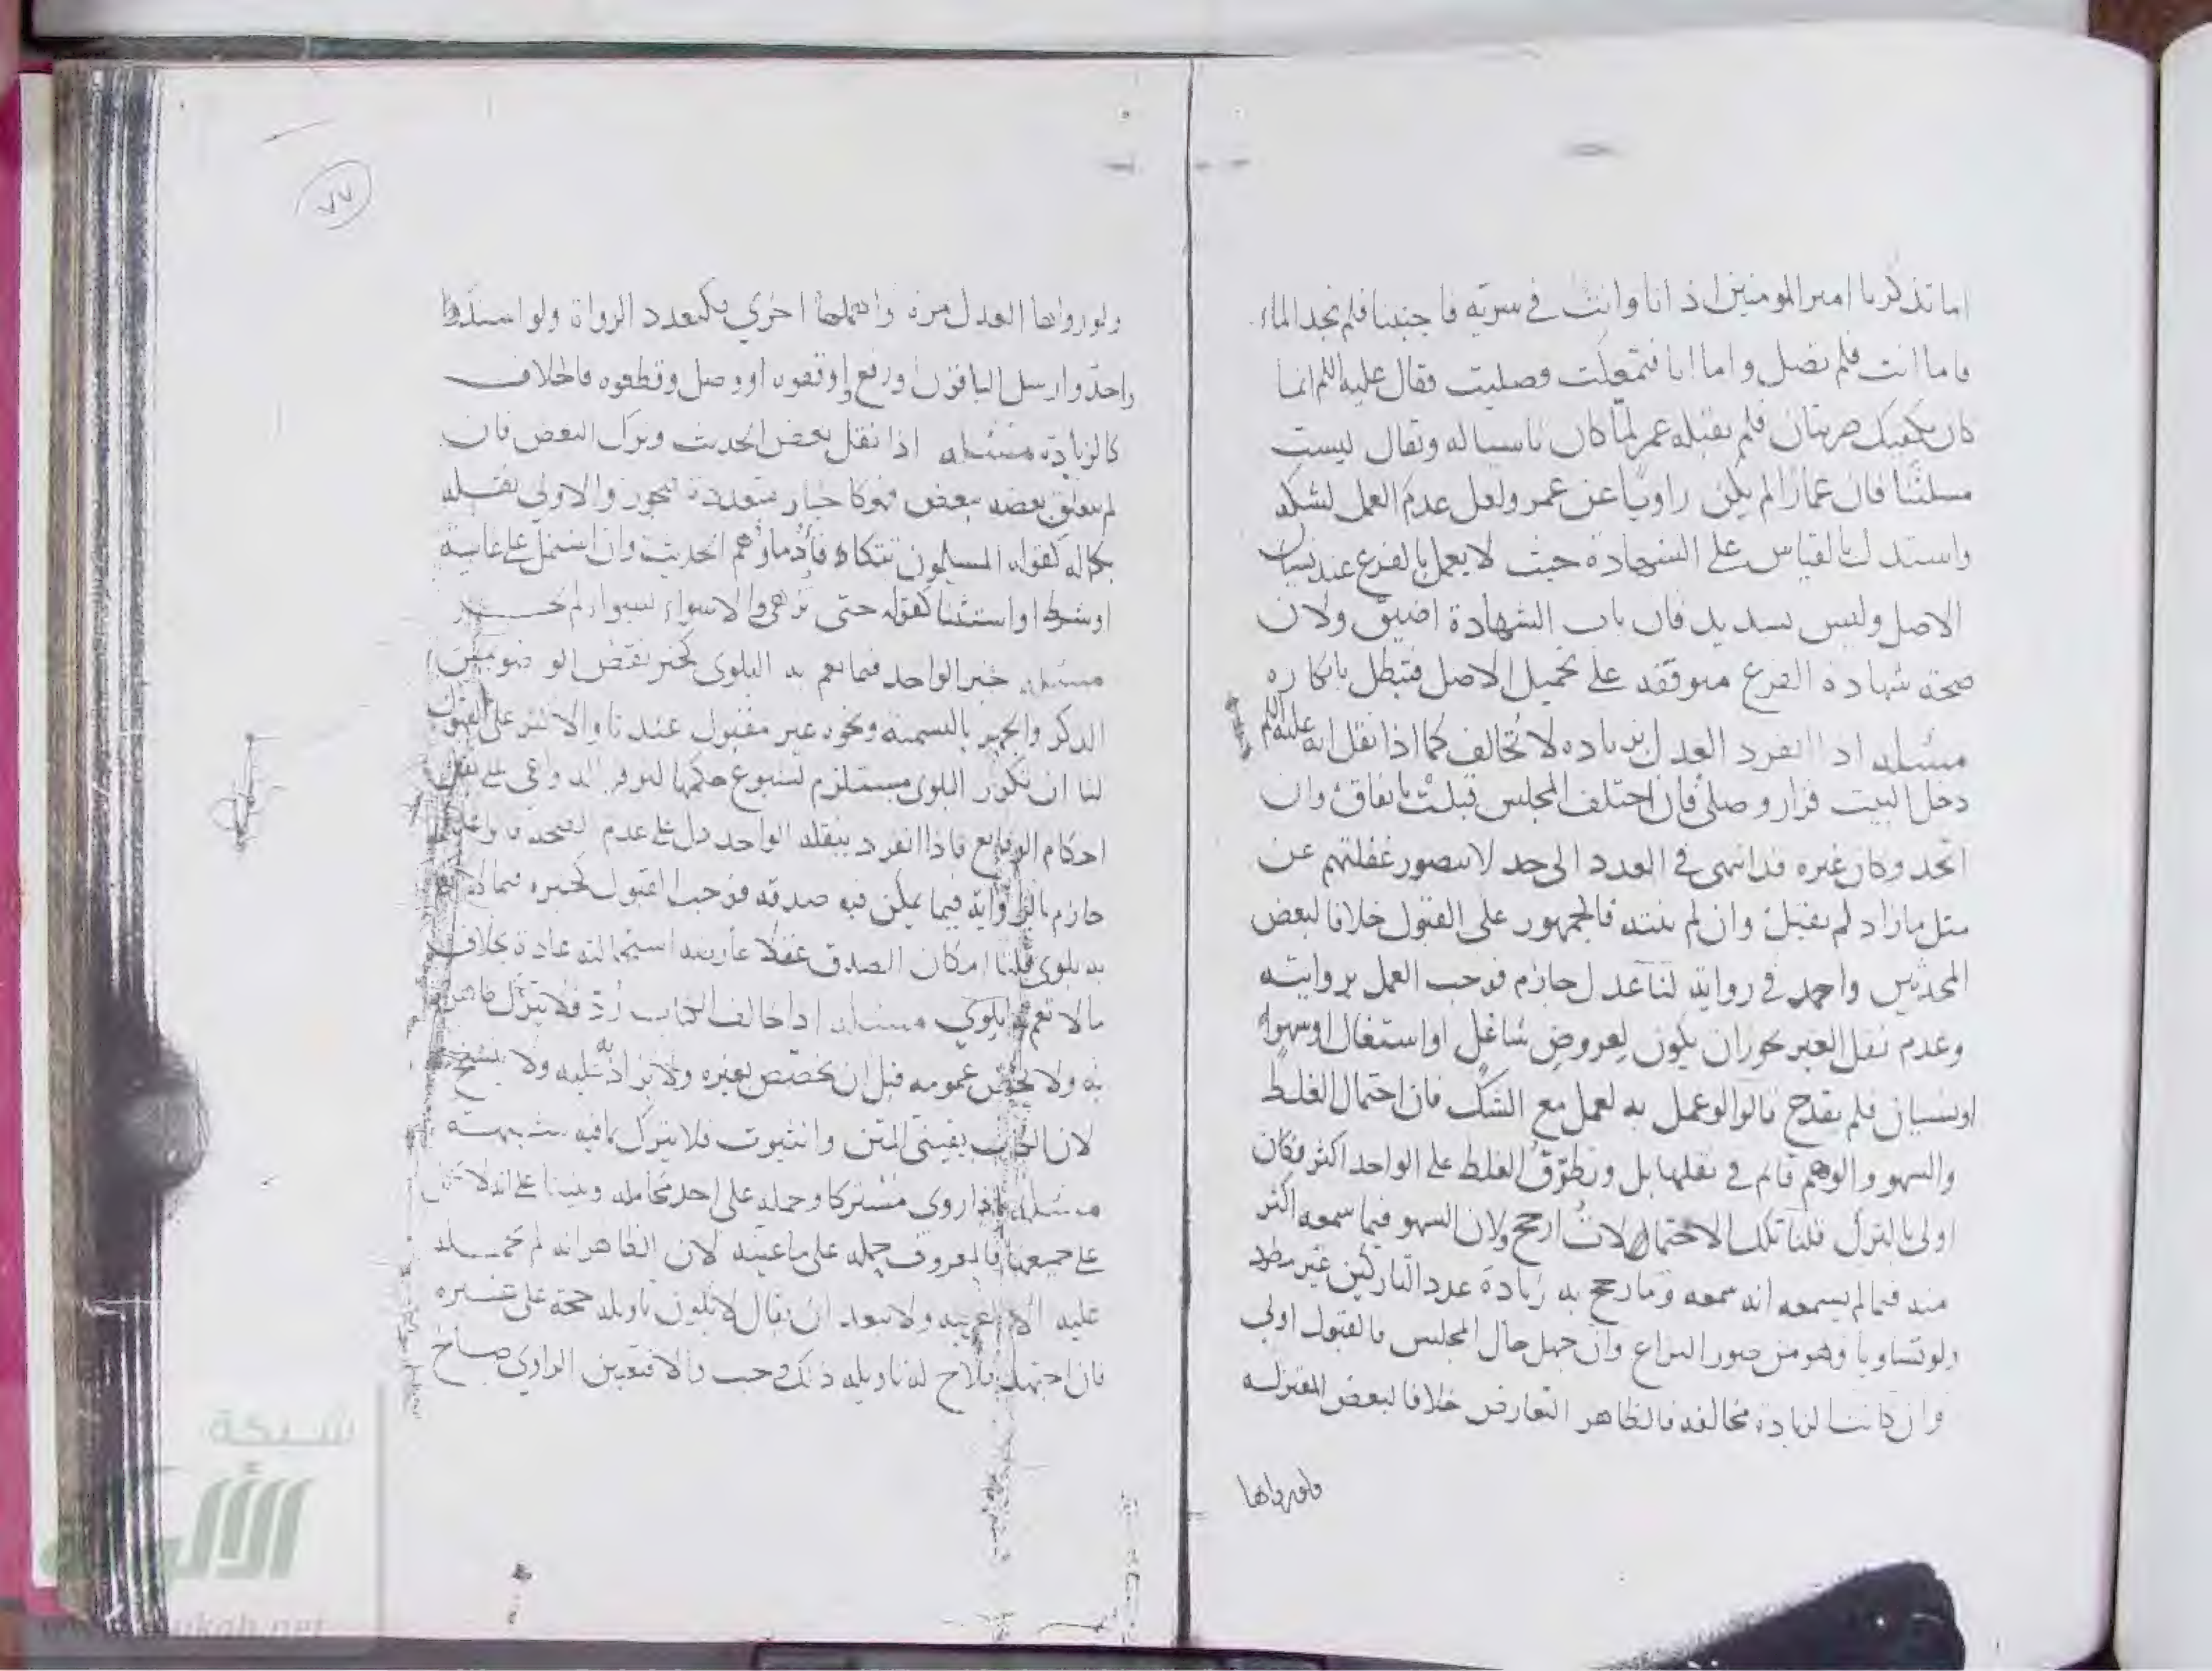 اما تذكر يا امير المومنين اذ انا وانت في سرية فاجنبنا فلم نجد الماء
فاما انت فلم تصل واما انا فتمعكت وصليت فقال عليه السلم انما
كان يكفيك ضربتان فلم يقبله عمر لما كان ناسيا له وتقال ليست
مسلتنا فان عمارا لم يكن راويا عن عمر ولعل عدم العمل لشكه
واستدل بالقياس على الشهادة حيث لا يعمل بالفرع عند نسيان
الاصل وليس بسديد فان باب الشهادة اضيق ولان
صحة شهادة الفرع متوقفة على تحميل الاصل فتبطل بانكاره
مسئله اذا انفرد العدل بزياده لا تخالف كما اذا نقل انه عليه السلم
دخل البيت فزاد وصلى فان اختلف المجلس قبلت باتفاق وان
اتحد وكان غيره قد انتهى في العدد الى حد لا يتصور غفلتهم عن
مثل ما زاد لم يقبل وان لم ينته فالجمهور على القبول خلافا لبعض
المحدثين واحمد في رواية لنا عدل جازم فوجب العمل بروايته
وعدم نقل الغير يجوز ان يكون لعروض شاغل او اشتغال او سهو
او نسيان فلم يقدح قالوا لو عمل به لعمل مع الشك فان احتمال الغلط
والسهو والوهم قائم في نقلها بل وتطرق الغلط على الواحد اكثر فكان
اولى بالترك قلنا تلك الاحتمالات ارجح ولان السهو فيما سمعه اكثر
منه فيما لم يسمعه انه سمعه وما رجح به زيادة عدد التاركين غير مطرد
ولو تساويا وهو من صور النزاع وان جهل حال المجلس فالقبول اولى
وان كانت الزيادة مخالفة فالظاهر التعارض خلافا لبعض المعتزله
ولو رواها
٧٧
ولو رواها العدل مرة واهملها اخرى فكتعدد الرواة ولو اسندوا
واحد وارسل الباقون او رفع او وقفوه او وصل وقطعوه فالخلاف
كالزيادة مسئله اذا نقل بعض الحديث وترك البعض فان
لم يتعلق بعضه ببعض فهو كاخبار متعددة تجوز والاولى نقله
بكماله كقوله المسلمون تتكافأ دماؤهم الحديث وان اشتمل على غاية
او شرط او استثنا كقوله حتى تزهى والا سواء بسواء لم يجز
مسئله خبر الواحد فيما تعم به البلوى كخبر نقض الوضو بمس
الذكر والجهر بالتسمية ونحوه غير مقبول عندنا والاكثر على القبول
لنا ان تكرر البلوى مستلزم لشيوع حكمها لتوفر الدواعي على نقل
احكام الوقايع فاذا انفرد بنقله الواحد دل على عدم الصحة قالوا عدل
جازم بالرواية فيما يمكن فيه صدقه فوجب القبول كخبره فيما لا
به بلوى قلنا امكان الصدق عقلا عارضه استحالته عادة بخلاف
ما لا تعم به البلوى مسئله اذا خالف الكتاب رد فلا يترك ظاهر
به ولا يخص عمومه قبل ان يخصص بغيره ولا يزاد به عليه ولا ينسخ
لان الكتاب يقيني المتن والثبوت فلا يترك بما فيه شبهة
مسئله اذا روى مشتركا وحمله على احد محامله وبنينا على انه لا
على جميعها فالمعروف حمله على ما عينه لان الظاهر انه لم يحمله
عليه الا لقرينه ولا يبعد ان يقال لا يكون تاويله حجة على غيره
فان اجتهد فلاح له تاويله ذلك وجب والا فتعيين الراوي صالح
شبكة
الألوكة